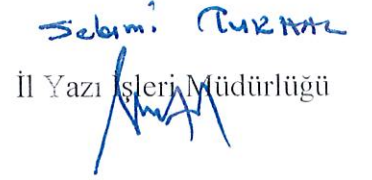 Selami TURHAL
İl Yazı İşleri Müdürlüğü